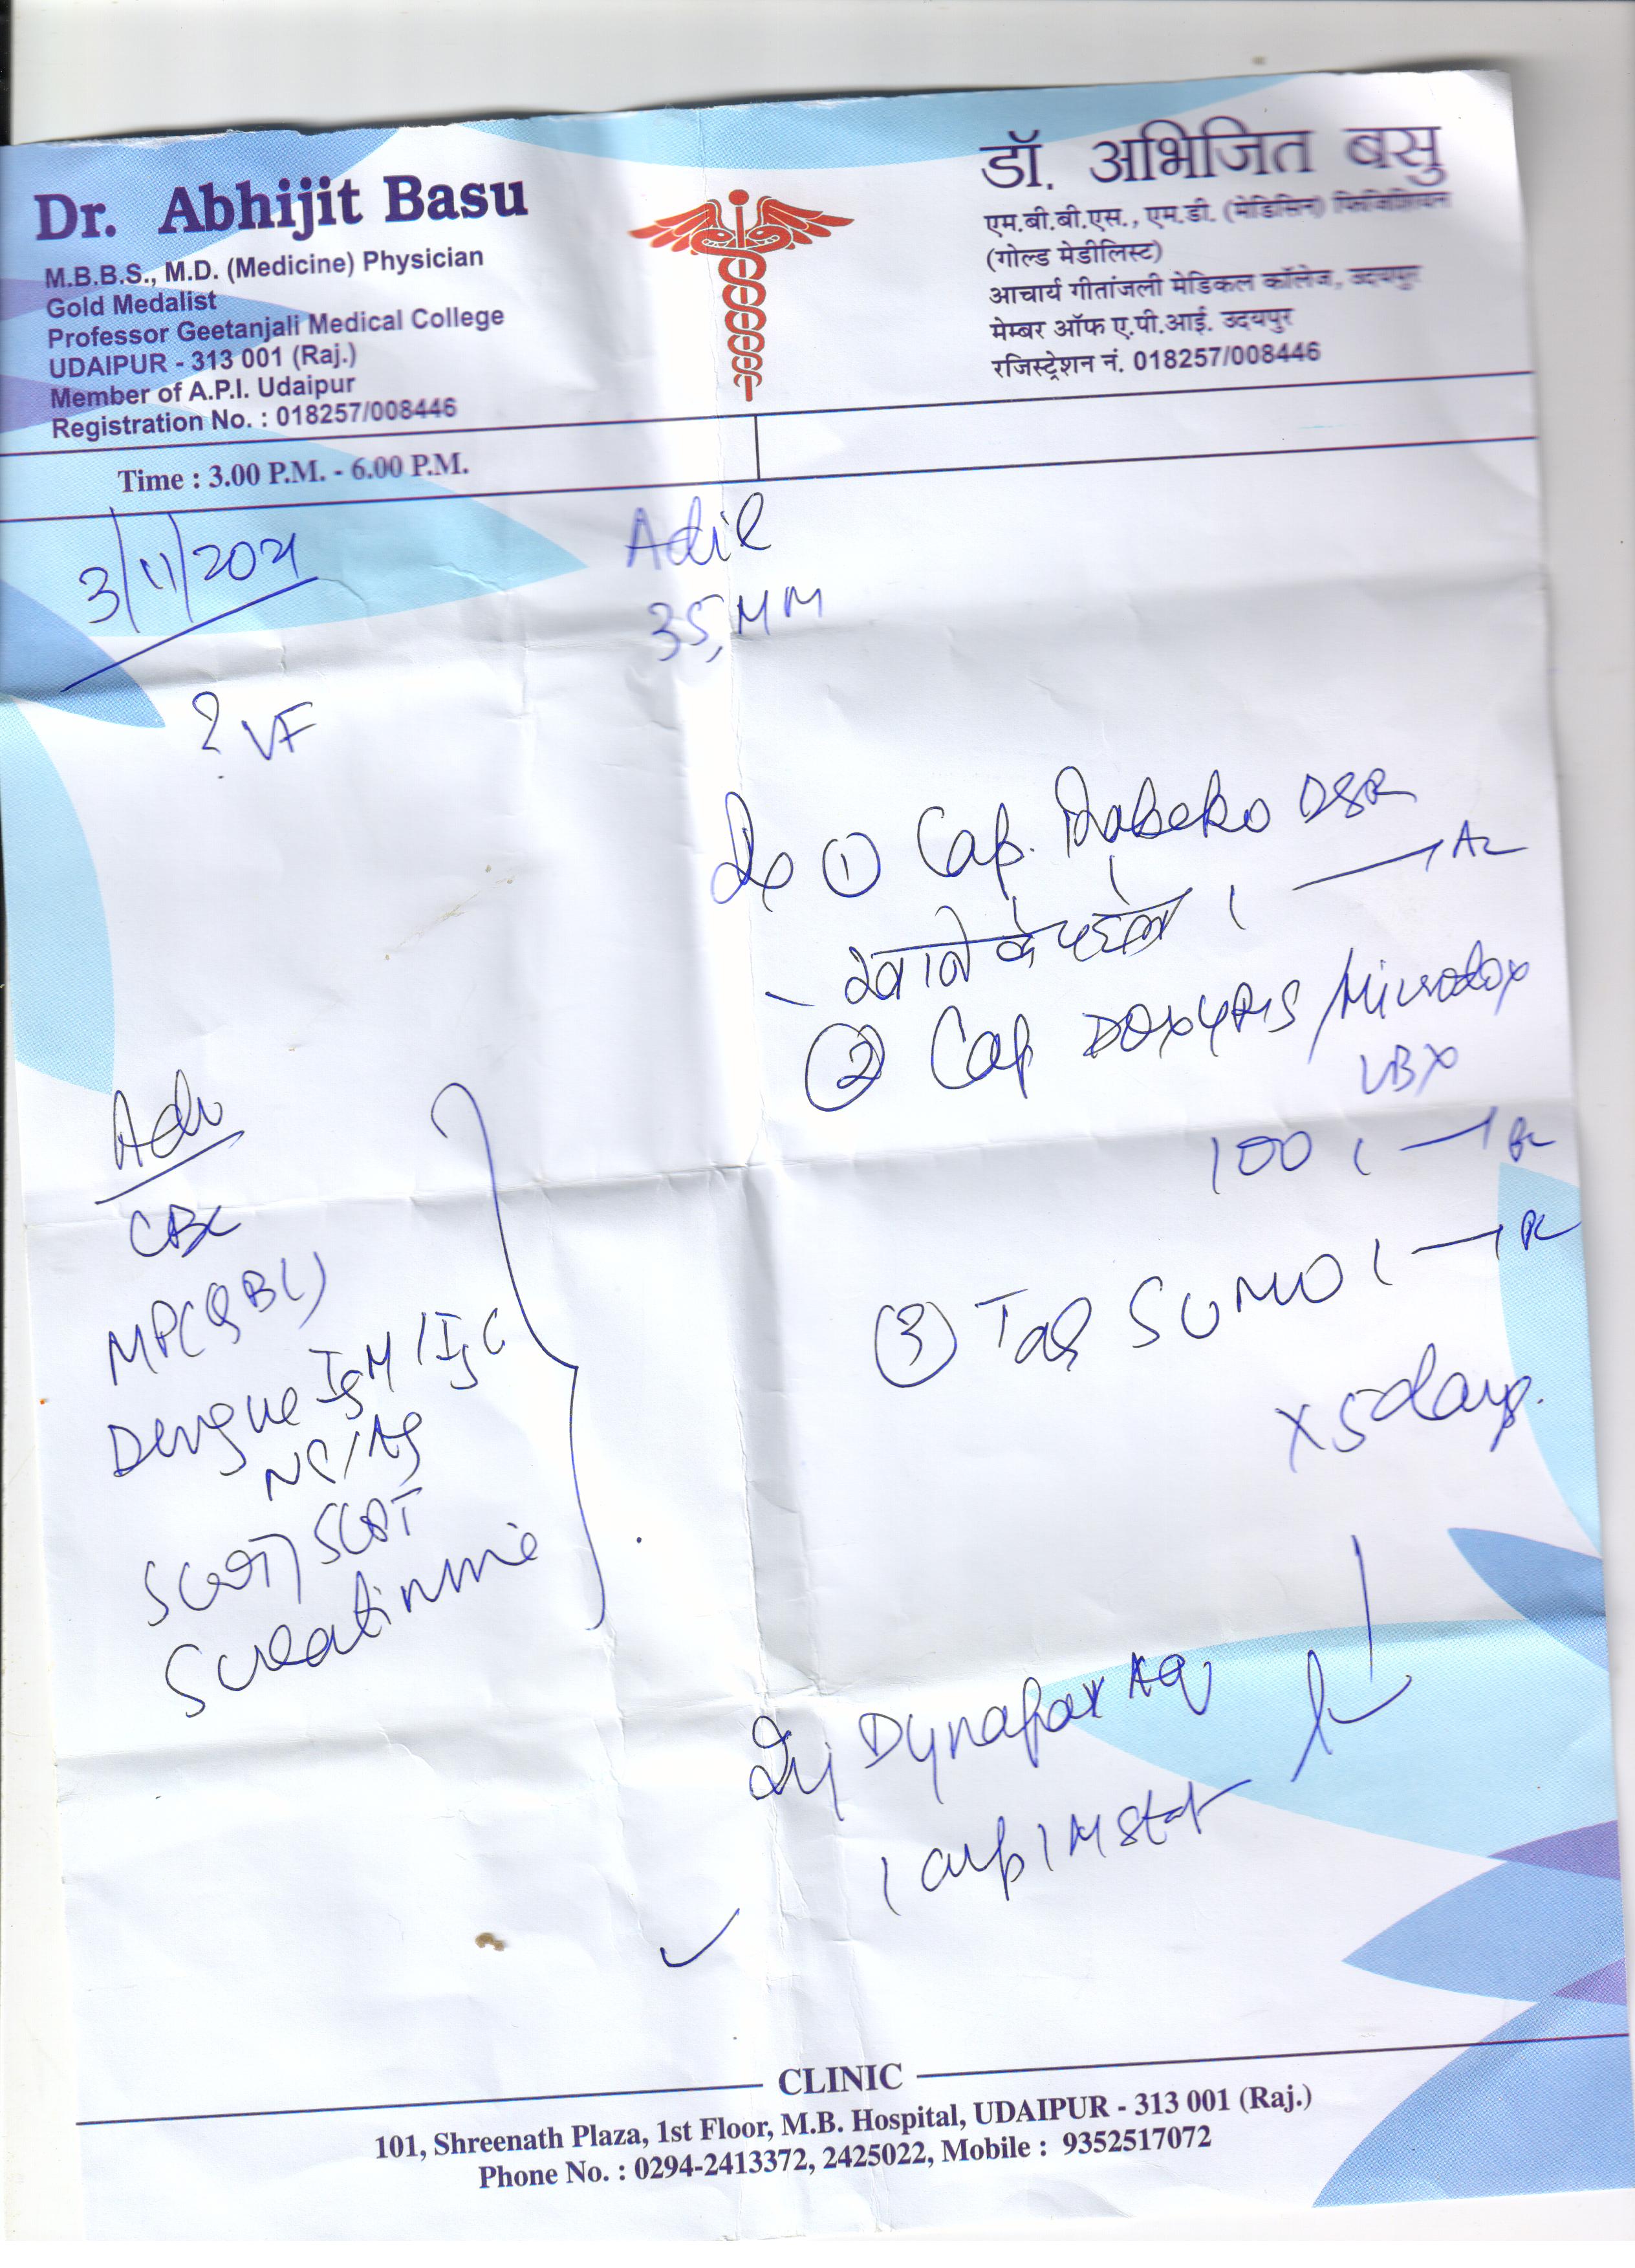 Dr. Abhijit Basu
M.B.B.S., M.D. (Medicine) Physician
Gold Medalist
Professor Geetanjali Medical College
UDAIPUR - 313 001 (Raj.)
Member of A.P.I. Udaipur
Registration No. : 018257/008446
डॉ. अभिजित बसु
एम.बी.बी.एस., एम.डी. (मेडिसिन) फिजिशियन
(गोल्ड मेडीलिस्ट)
आचार्य गीतांजली मेडिकल कॉलेज, उदयपुर
मेम्बर ऑफ ए.पी.आई. उदयपुर
रजिस्ट्रेशन नं. 018257/008446
Time : 3.00 P.M. - 6.00 P.M.
3/11/2021
Adil
35,
? VF
① Cap. DSR
खाने के पहले
② Cap /Microdox
LBX
100
③ Tab SUMO
x 5 days.
Adv
CBC
MP(QBC)
Dengue IgM/IgG
SGOT/
S creatinine
Inj Dynapar AQ
1 amp IM stat
CLINIC
101, Shreenath Plaza, 1st Floor, M.B. Hospital, UDAIPUR - 313 001 (Raj.)
Phone No. : 0294-2413372, 2425022, Mobile : 9352517072